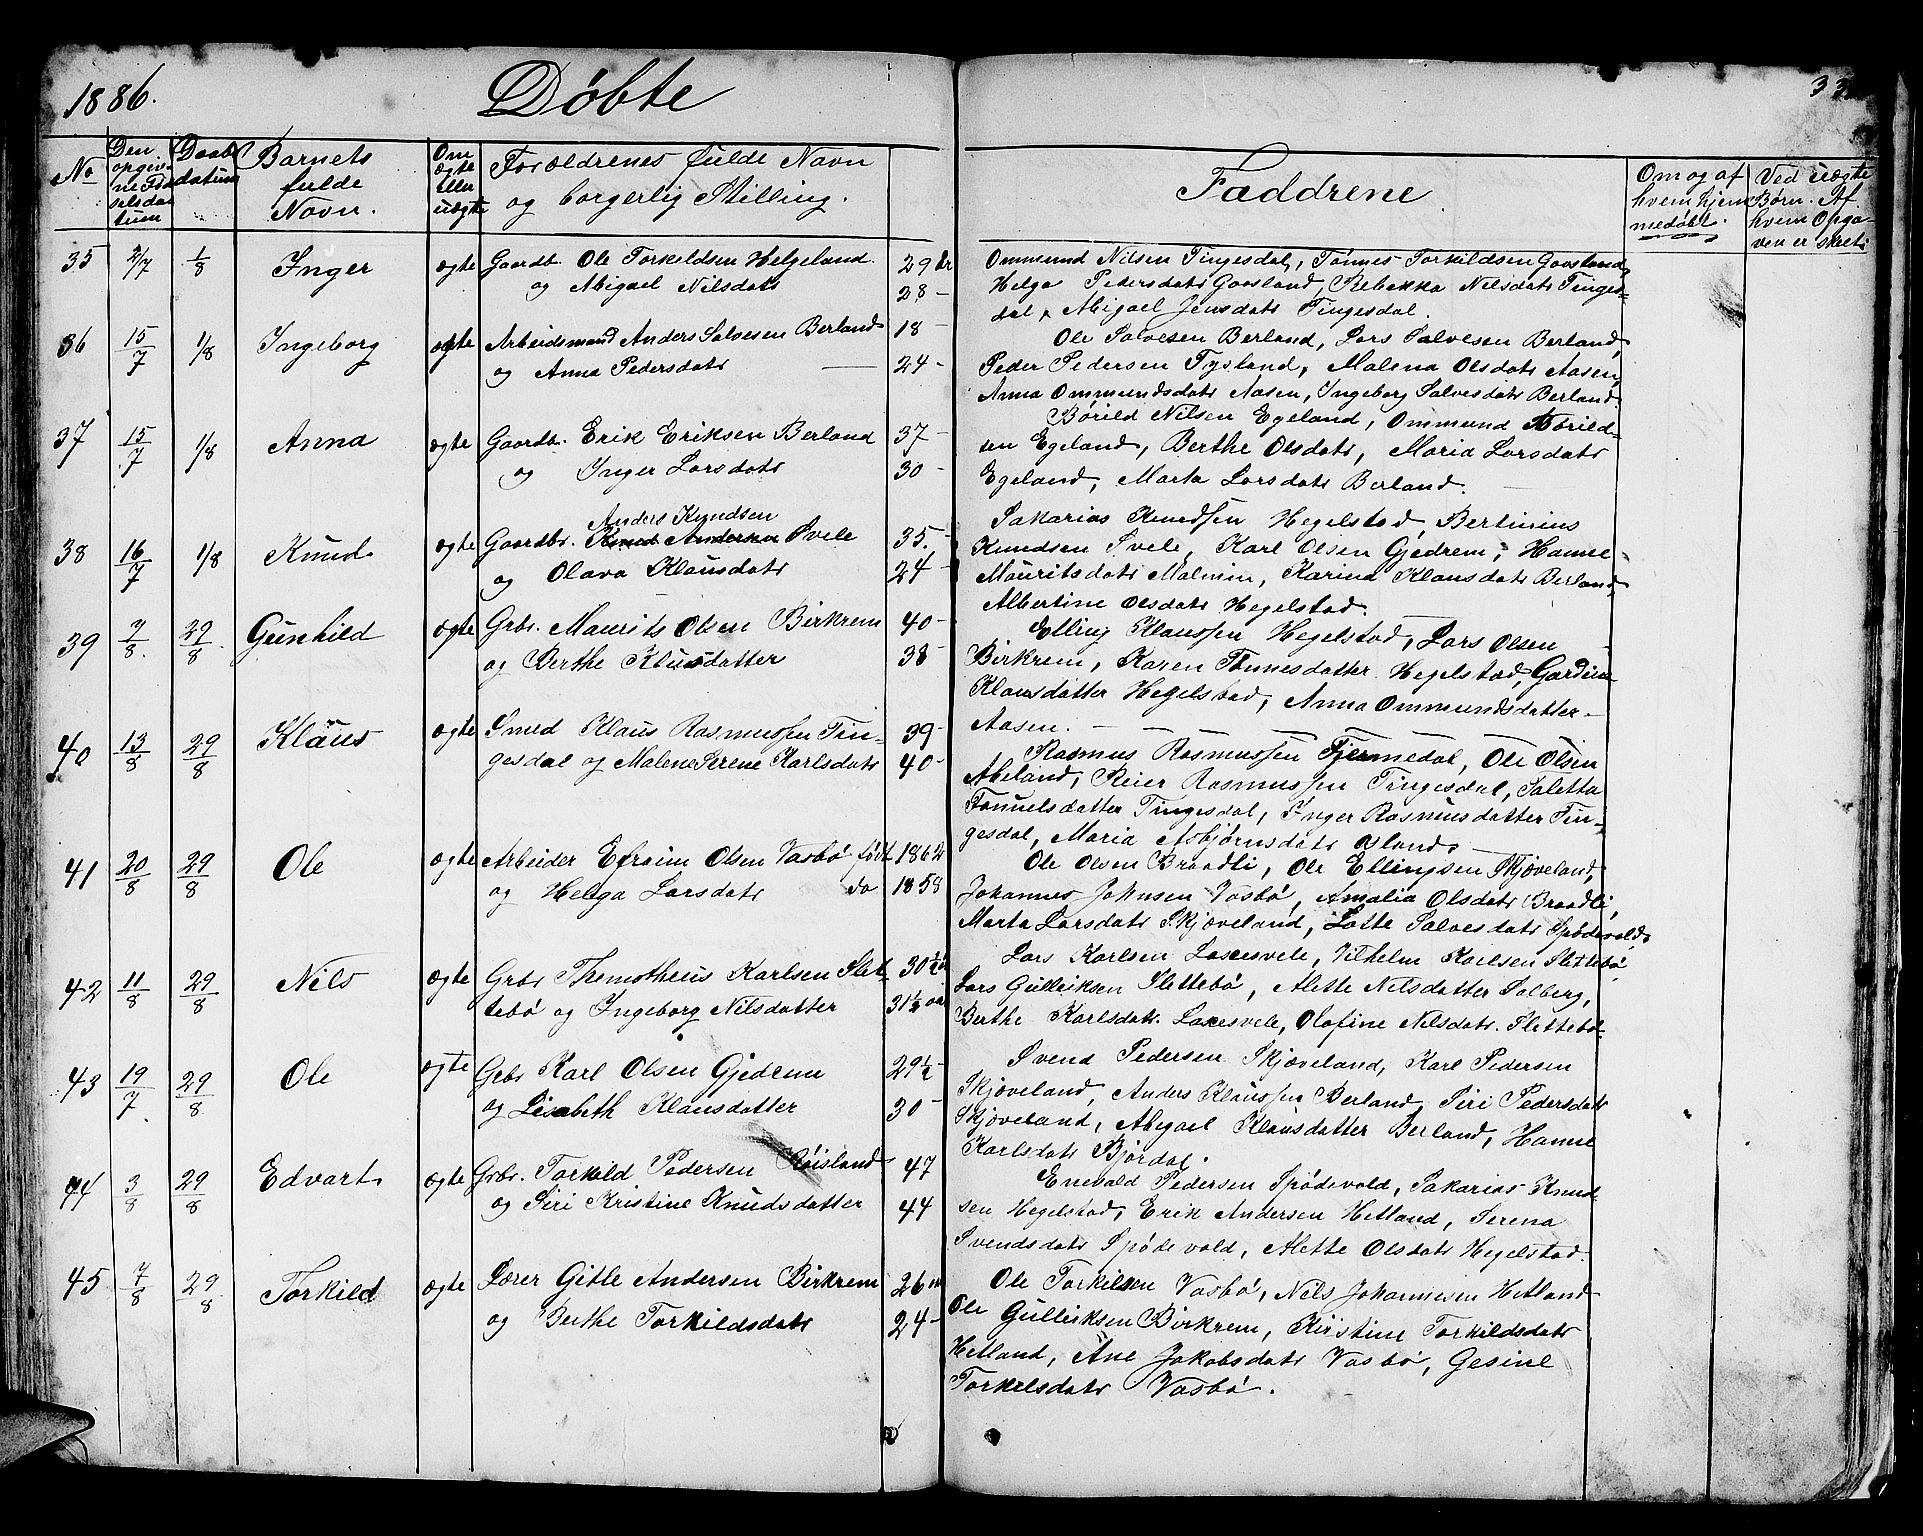 1886.
Døbte
No
Den opgivne Fødselsdatum
Daabsdatum
Barnets fulde Navn.
Om ægte eller uægte
Forældrenes fulde Navn og borgerlig Stilling.
35 2/7 1/8 Inger ægte Gaardb. Ole Torkildsen Helgeland 29 år
og Abigael Nilsdatr 28 -
36 15/7 1/8 Ingeborg ægte Arbeidsmand Anders Salvesen Berland 18 -
og Anna Pedersdatr 24 -
37 15/7 1/8 Anna ægte Gaardb. Erik Eriksen Berland 37 -
og Inger Larsdatr 30 -
Anders Knudsen
38 16/7 1/8 Knud ægte Gaardbr. Knud Andersen Svele 35. -
og Olava Klausdatr 24 -
39 7/8 29/8 Gunhild ægte Grbr. Maurits Olsen Birkrem 40 -
og Berthe Klausdatter 38
40 13/8 29/8 Klaus ægte Smed Klaus Rasmussen Tin- 39 -
gesdal og Malene Serene Karlsdatr 40 -
41 20/8 29/8 Ole ægte Arbeider Efraim Olsen Vasbø født 1862
og Helga Larsdatr do 1858
42 11/8 29/8 Nils ægte Grbr Themotheus Karlsen Slet- 30 1/2
tebø og Ingeborg Nilsdatter 31 1/2 aar
43 19/7 29/8 Ole ægte Grbr Karl Olsen Gjedrem 29 1/2 -
og Lisabeth Klausdatter 30 -
44 3/8 29/8 Edvart ægte Grbr. Torkild Pedersen Røisland 47
og Siri Kristine Knudsdatter 44
45 7/8 29/8 Torkild ægte Lærer Gitle Andersen Birkrem 26
og Berthe Torkildsdatr 24 -
33
Faddrene.
Om og af hvem hjemmedøbt.
Ved uægte Børn. Af hvem Opgaven er skeet.
Ommund Nilsen Tingesdal, Tønnes Torkildsen Gaasland,
Helga Pedersdatr Gaasland, Rebekka Nilsdatr Tinges-
dal, Abigael Jensdatr Tingesdal.
Ole Salvesen Berland, Lars Salvesen Berland,
Peder Pedersen Tysland, Malena Olsdatr Aasen,
Anna Ommundsdatr Aasen, Ingeborg Salvesdatr Berland.
Børild Nilsen Egeland, Ommund Børild-
sen Egeland, Berthe Olsdatr, Maria Larsdatr
Egeland, Marta Larsdatr Berland.
Sakarias Knudssen Hegelstad, Bertinius
Knudsen Svele, Karl Olsen Gjedrem, Hanne
Mauritsdatr Malmin, Karina Klausdatr Berland,
Albertine Olsdatr Hegelstad.
Elling Klaussen Hegelstad, Lars Olsen
Birkrem, Karen Tønnesdatter Hegelstad,
Klausdatter Hegelstad, Anna Ommundsdatter
Aasen.
Rasmus Rasmussen Fjermedal, Ole Olsen
Abeland, Reier Rasmussen Tingesdal, Saletta
Tønnelsdatter Tingesdal, Inger Rasmusdatter Tin-
gesdal, Maria Asbjørnsdatr
Ole Olsen Braadli, Ole Ellingsen Skjæveland,
Johannes Johnsen Vasbø, Amalia Olsdatr Braadli,
Marta Larsdatr Skjæveland, Lotte Salvesdatr Spødevold
Lars Karlsen Laxesvele, Vilhelm Karlsen Slettebø
Lars Gulleiksen Slettebø, Alette Nilsdatter Solberg,
Berthe Karlsdatr. Laxesvele, Olofine Nilsdatr. Slettebø.
Svend Pedersen Skjæveland, Karl Pedersen
Skjæveland, Anders Klaussen Berland, Siri Pedersdatr
Skjæveland, Abigael Klausdatter Berland, Hanne
Karlsdatr Bjørdal.
Enevald Pedersen Spødevold, Sakarias Knud-
sen Hegelstad, Erik Andersen Hetland, Serena
Svendsdatr Spødevold, Alette Olsdatr Hegelstad.
Ole Torkilsen Vasbø, Nils Johannesen Hetland
Ole Gulleiksen Birkrem, Kristine Torkildsdatr
Hetland, Ane Jakobsdatr Vasbø, Gesine
Torkelsdatr Vasbø.